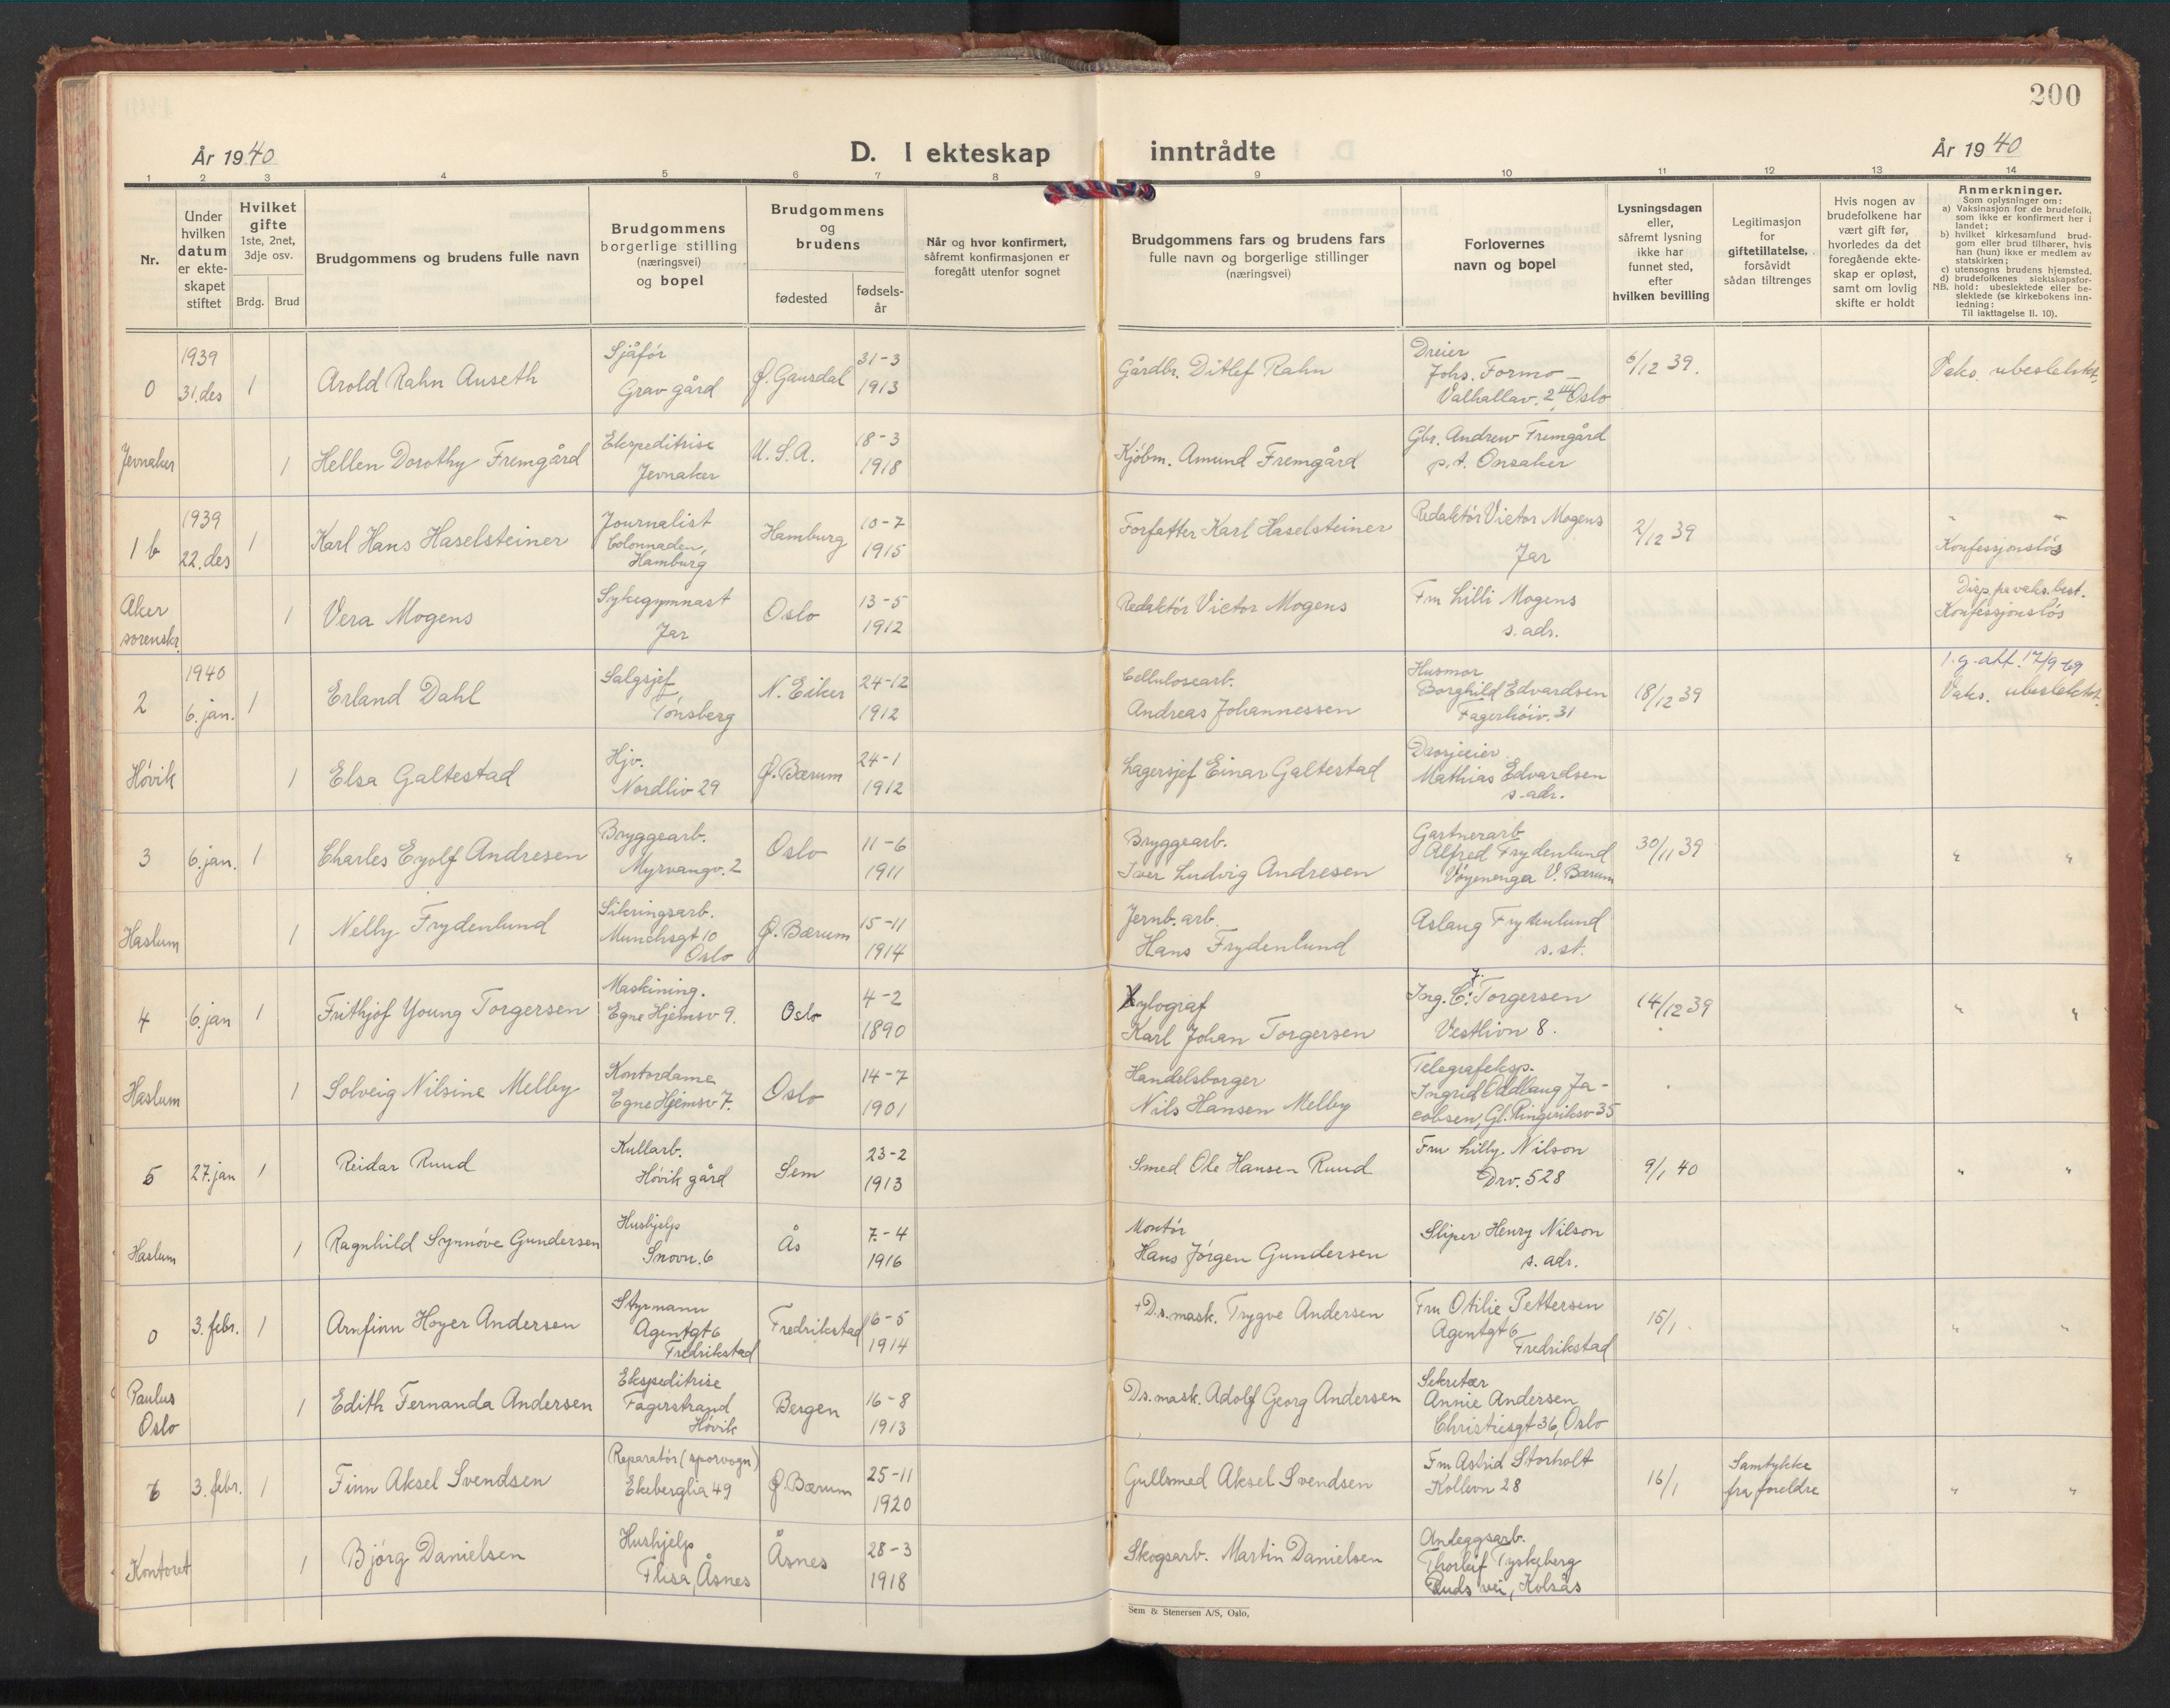 200
År 1940
D. I ekteskap inntrådte
År 1940
1 2 3 4 5 6 7 8 9 10 11 12 13 14
Nr.
Under
hvilken
datum
er ekte-
skapet
stiftet
Hvilket
gifte
1ste, 2net,
3dje osv.
Brdg. Brud
Brudgommens og brudens fulle navn
Brudgommens
borgerlige stilling
(næringsvei)
og bopel
Brudgommens
og
brudens
fødested
fødsels-
år
Når og hvor konfirmert,
såfremt konfirmasjonen er
foregått utenfor sognet
Brudgommens fars og brudens fars
fulle navn og borgerlige stillinger
(næringsvei)
Forlovernes
navn og bopel
Lysningsdagen
eller,
såfremt lysning
ikke har
funnet sted,
efter
hvilken bevilling
Legitimasjon
for
giftetillatelse,
forsåvidt
sådan tiltrenges
Hvis nogen av
brudefolkene har
vært gift før,
hvorledes da det
foregående ekte-
skap er opløst,
samt om lovlig
skifte er holdt
Anmerkninger.
Som oplysninger om:
a) Vaksinasjon for de brudefolk,
som ikke er konfirmert her i
landet;
b) hvilket kirkesamfund brud-
gom eller brud tilhører, hvis
han (hun) ikke er medlem av
statskirken;
c) utensogns brudens hjemsted.
d) brudefolkenes slektskapsfor-
NB. hold: ubeslektede eller be-
slektede (se kirkebokens inn-
ledning:
Til iakttagelse II. 10).
0
1939
31. des
1
Arold Rahn Auseth
Sjåfør
Grav gård
Ø. Gausdal
31-3
1913
Gårdbr. Ditlef Rahn
Dreier
Johs. Formo
Valhallav. 2 III Oslo
6/12 39.
Vaks. ubeslektet.
Jevnaker
1
Hellen Dorothy Fremgård
Ekspeditrise
Jevnaker
U.S.A.
18-3
1918
Kjøbm. Amund Fremgård
Gbr. Andrew Fremgård
p.t. Onsaker
1 b
1939
22. des
1
Karl Hans Haselsteiner
Journalist
Colonnaden,
Hamburg
Hamburg
10-7
1915
Forfatter Karl Haselsteiner
Redaktør Victor Mogens
Jar
2/12 39
" -
Konfesjonsløs
Aker
sorenskr.
1
Vera Mogens
Sykegymnast
Jar
Oslo
13-5
1912
Redaktør Victor Mogens
Fru Lilli Mogens
s. adr.
Disp. fra vaks. best.
Konfesjonsløs
2
1940
6. jan.
1
Erland Dahl
Salgsjef
Tønsberg
N. Eiker
24-12
1912
Cellulosearb.
Andreas Johannessen
Husmor
Borghild Edvardsen
Fagerhøiv. 31
18/12 39
1. g. att. 17/9-69
Vaks. ubeslektet.
Høvik
1
Elsa Galtestad
Hjv.
Nordliv 29
Ø. Bærum
24-1
1912
Lagersjef Einar Galtestad
Drosjeeier
Mathias Edvardsen
s. adr.
3
6. jan.
1
Charles Eyolf Andresen
Bryggearb.
Myrvangv. 2
Oslo
11-6
1911
Bryggearb.
Iver Ludvig Andresen
Gartnerarb
Alfred Frydenlund
Vøyenenga V. Bærum
30/11 39
" "
Haslum
1
Nelly Frydenlund
Sikringsarb.
Munchsgt 10
Oslo
Ø. Bærum
15-11
1914
Jernb. arb.
Hans Frydenlund
Aslaug Frydenlund
s. st.
4
6. jan
1
Frithjof Young Torgersen
Maskining.
Egne Hjemsv 9.
Oslo
4-2
1890
Xylograf
Karl Johan Torgersen
Ing. C. J. Torgersen
Vestlivn 8.
14/12 39
" "
Haslum
1
Solveig Nilsine Melby
Kontordame
Egne Hjemsv 7.
Oslo
14-7
1901
Handelsborger
Nils Hansen Melby
Telegrafeksp.
Ingrid Oddlaug Ja-
cobsen, Gl. Ringeriksv 35
5
27. jan
1
Reidar Ruud
Kullarb.
Høvik gård
Sem
23-2
1913
Smed Ole Hansen Ruud
Fru Lilly Nilson
Drv. 528
9/1 40
" "
Haslum
1
Ragnhild Synnøve Gundersen
Hushjelp
Snovn. 6
Ås
7-4
1916
Montør
Hans Jørgen Gundersen
Sliper Henry Nilson
s. adr.
0
3. febr.
1
Arnfinn Høyer Andersen
Styrmann
Agentgt 6
Fredrikstad
Fredrikstad
16-5
1914
+ D.s. mask. Trygve Andersen
Fru Otilie Pettersen
Agentgt 6
Fredrikstad
15/1
" "
Paulus
Oslo
1
Edith Fernanda Andersen
Ekspeditrise
Fagerstrand
Høvik
Bergen
16-8
1913
D.s. mask. Adolf Georg Andersen
Sekretær
Annie Andersen
Christiesgt 36, Oslo
6
3. febr.
1
Finn Aksel Svendsen
Reparatør (sporvogn)
Ekeberglia 49
Ø. Bærum
25-11
1920
Gullsmed Aksel Svendsen
Fru Astrid Storholt
Kollevn 28
16/1
Samtykke
fra foreldre
" "
Kontoret
1
Bjørg Danielsen
Hushjelp
Flisa, Åsnes
Åsnes
28-3
1918
Skogsarb. Martin Danielsen
Anleggsarb.
Thorleif Tyskeberg
Ruds vei, Kolsås
Sem & Stenersen A/S, Oslo,